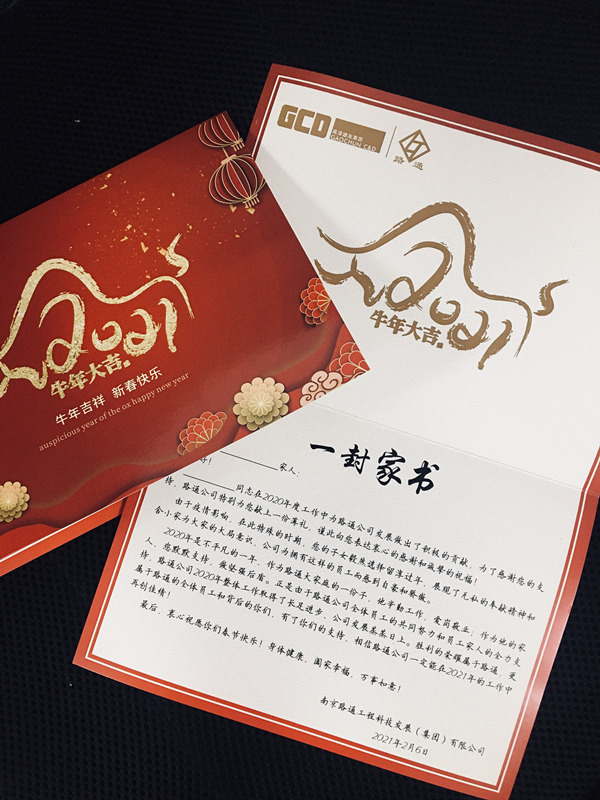 2021
牛年大吉
牛年吉祥 新春快乐
auspicious year of the ox happy new year
GCD
高淳建发集团
GAOCHUN C&D
路通
2021
牛年大吉
一封家书
家人：
好！
同志在2020年度工作中为路通公司发展做出了积极的贡献，为了感谢您的支
持，路通公司特别为您献上一份薄礼，谨此向您表达衷心的感谢和诚挚的祝福！
由于疫情影响，在此特殊的时期，您的子女毅然选择留淳过年，展现了无私的奉献精神和
舍小家为大家的大局意识，公司为拥有这样的员工而感到自豪和骄傲。
2020年是不平凡的一年，作为路通大家庭的一份子，他辛勤工作，爱岗敬业，作为他的家
人，您默默支持，做坚强后盾。正是由于路通公司全体员工的共同努力和员工家人的全力支
持，路通公司2020年整体工作取得了长足进步，公司发展蒸蒸日上。胜利的荣耀属于路通，更
属于路通的全体员工和背后的你们，有了你们的支持，相信路通公司一定能在2021年的工作中
再创佳绩！
最后，衷心祝愿你们春节快乐！身体健康，阖家幸福，万事如意！
南京路通工程科技发展（集团）有限公司
2021年2月6日